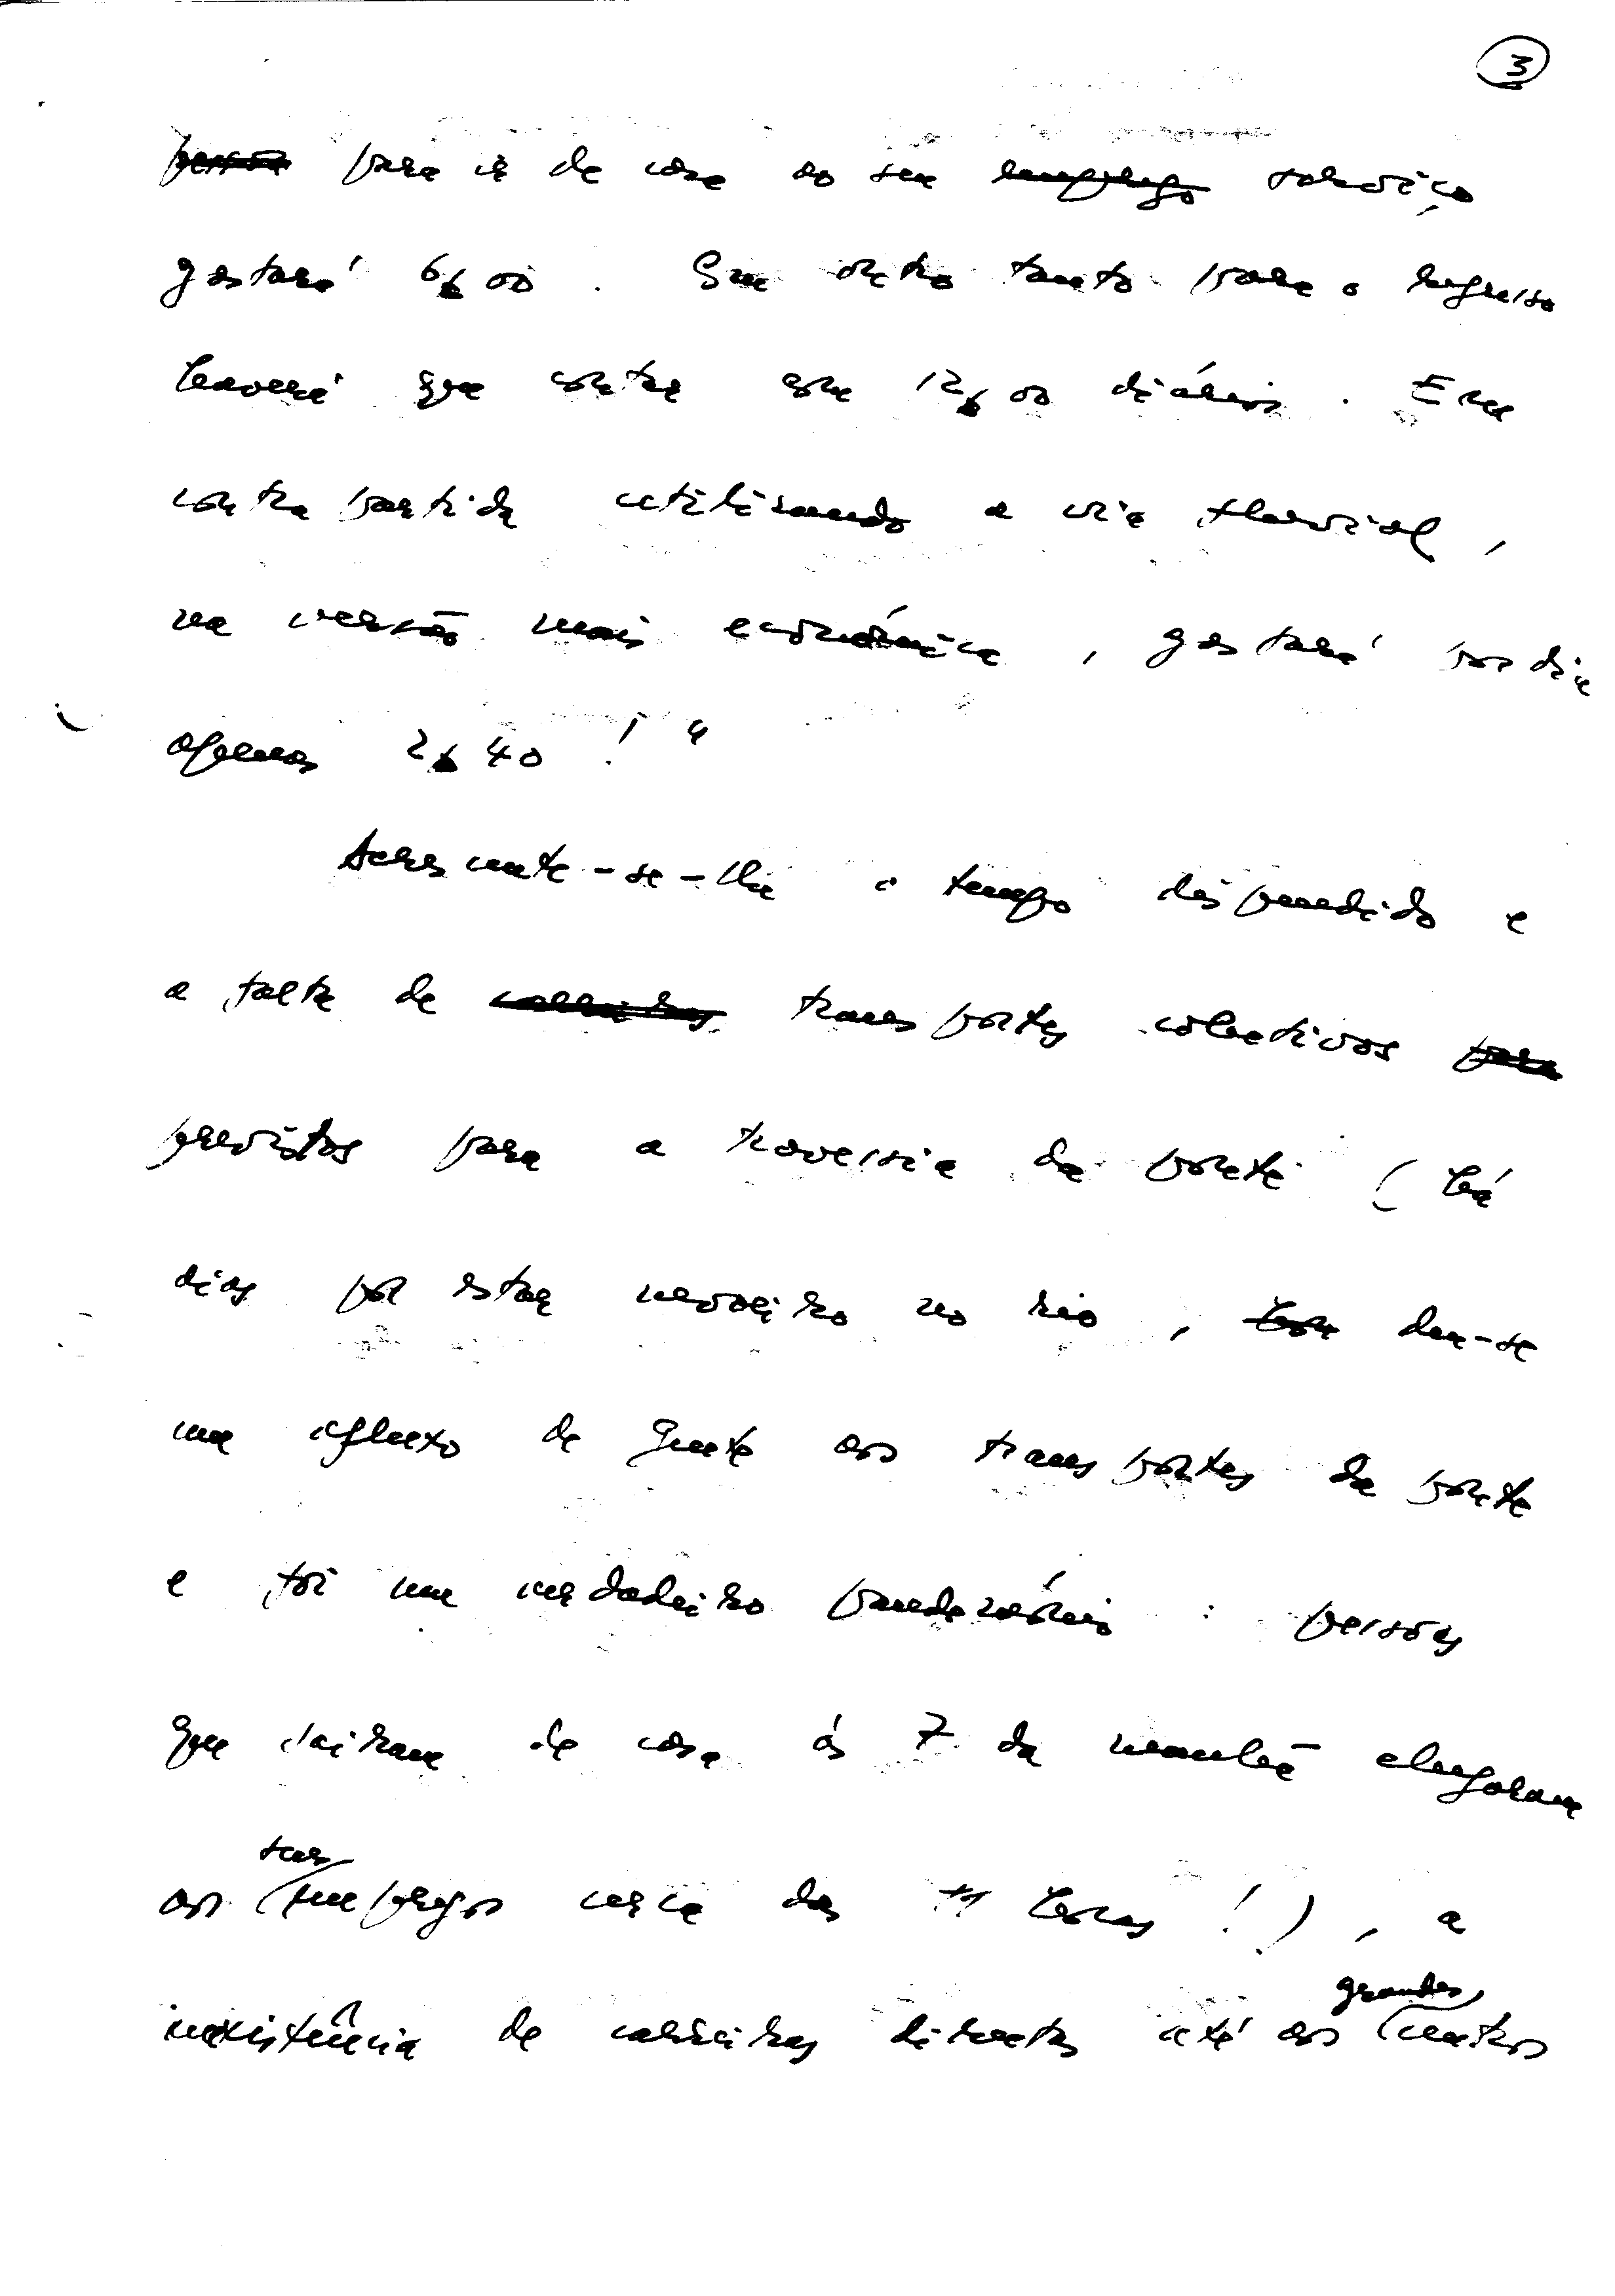 3
pessoa para ir de casa ao seu emprego serviço
gastará 6$00. Com outro tanto para o regresso
haverá que contar com 12$00 diários. Em
contrapartida utilisando a via fluvial,
na versão mais económica, gastará por dia
apenas 2$40!"
Acrescente-se-lhe o tempo dispendido e
a falta de carreiras transportes colectivos para
previstos para a travessia da ponte (há
dias por estar nevoeiro no rio, houve deu-se
um afluxo de gente aos transportes da ponte
e foi um verdadeiro pandemónio: pessoas
que sairam de casa ás 7 da manhã chegaram
aos seus empregos cerca das 11 horas!), a
inexistência de carreiras directas até aos grandes centros